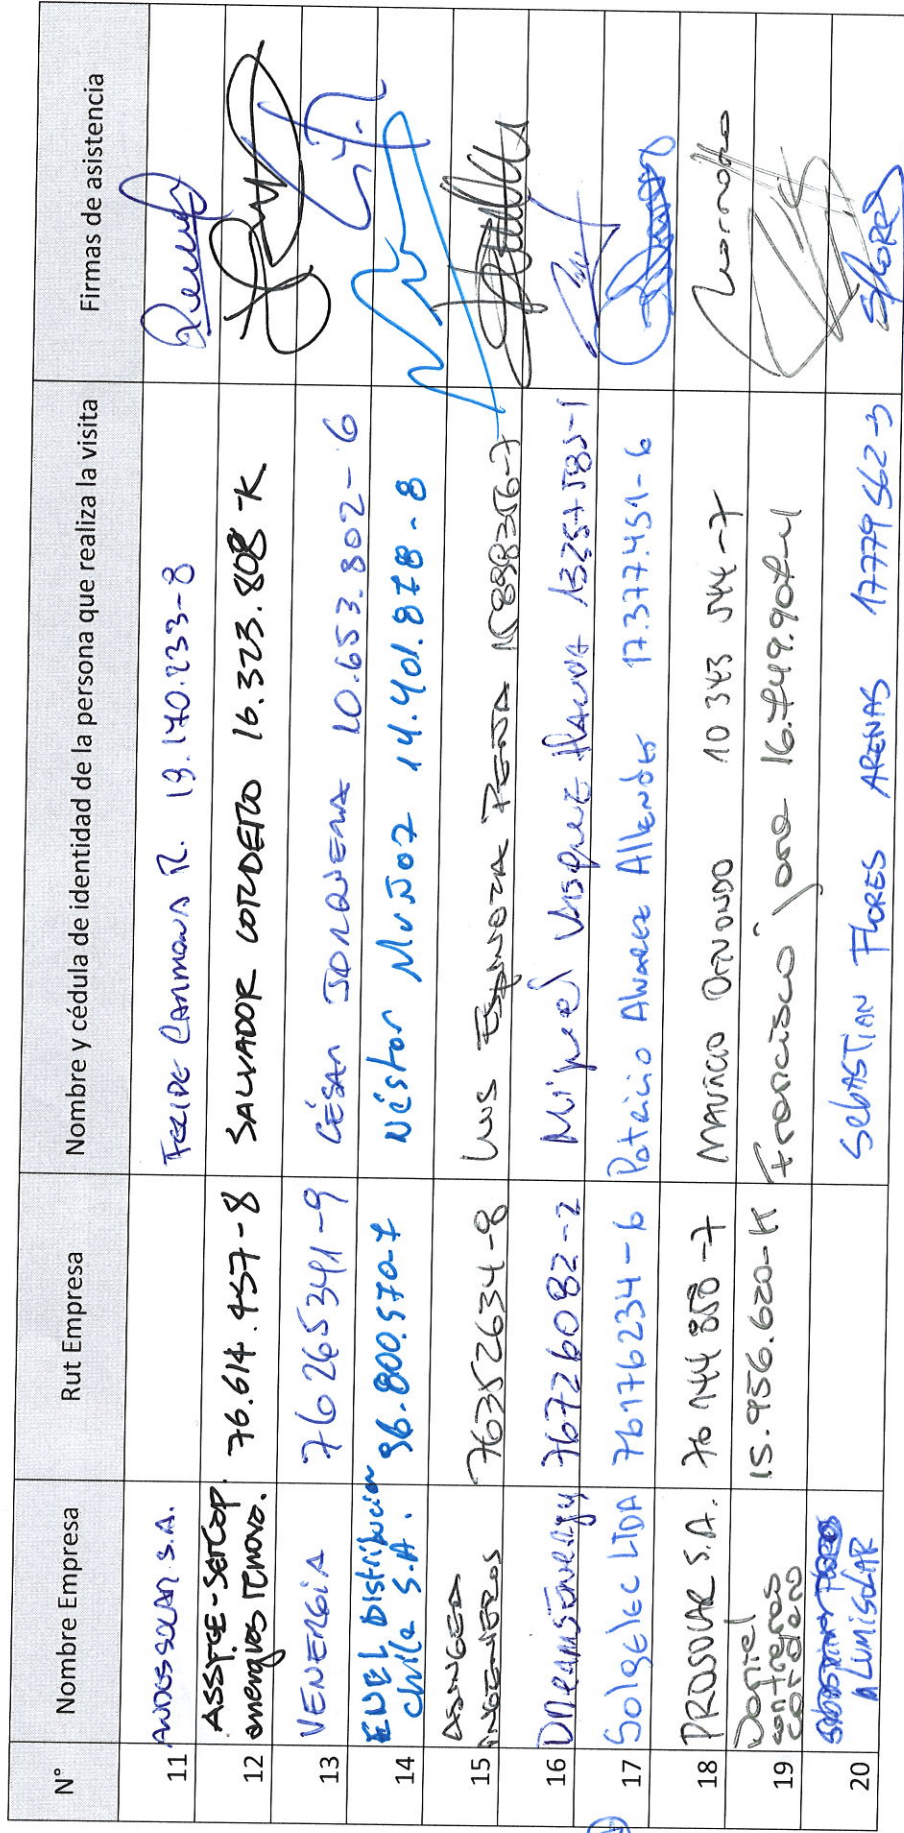 N° Nombre Empresa Rut Empresa Nombre y cédula de identidad de la persona que realiza la visita Firmas de asistencia
11 ANDES SOLAR S.A. FELIPE CARMONA R. 19.140.233-8
12 ASSYCE-SERCOP. 76.614.457-8 SALVADOR CORDERO 16.323.808-K
energias renova.
13 VENERGIA 76265341-9 CÉSAR JORQUERA 10.653.802-6
14 ENEL Distribucion 96.800.570-7 Néstor Muñoz 14.401.878-8
Chile S.A.
15 INGENIEROS 76352634-8 LUIS ESPINOZA PEÑA
16 DreamsEnergy 76726082-2 Miguel
17 Solgelec LTDA 76176234-6 Patricio Alvarez Allendes 17.377.451-6
18 PROSOLAR S.A. 76 144 850-7 MAURICIO 10 343 544-7
19 Daniel contreras cordero 15.956.620-K Francisco Jara
20 ALUMISOLAR SEBASTIAN FLORES ARENAS 17779562-3
FLORES